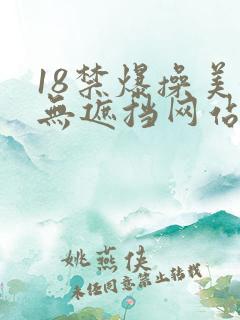 18禁爆操美
無遮挡网佔
姚燕侠
未任同意禁止转载